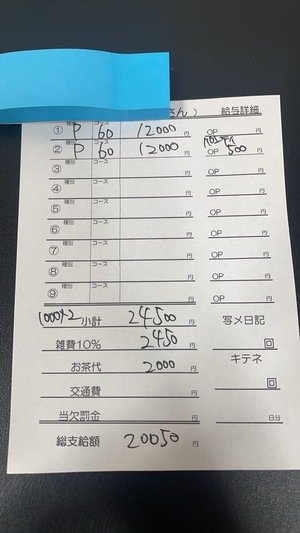 さん） 給与詳細
① 種別 P コース 60 12000 円 OP パンティ 円
② 種別 P コース 60 12000 円 OP 500 円
③ 種別 コース 円 OP 円
④ 種別 コース 円 OP 円
⑤ 種別 コース 円 OP 円
⑥ 種別 コース 円 OP 円
⑦ 種別 コース 円 OP 円
⑧ 種別 コース 円 OP 円
⑨ 種別 コース 円 OP 円
1000×2 小計 24500 円 写メ日記
雑費10% 2450 円 回
お茶代 2000 円 キテネ
交通費 円 回
当欠罰金 円 日分
総支給額 20050 円